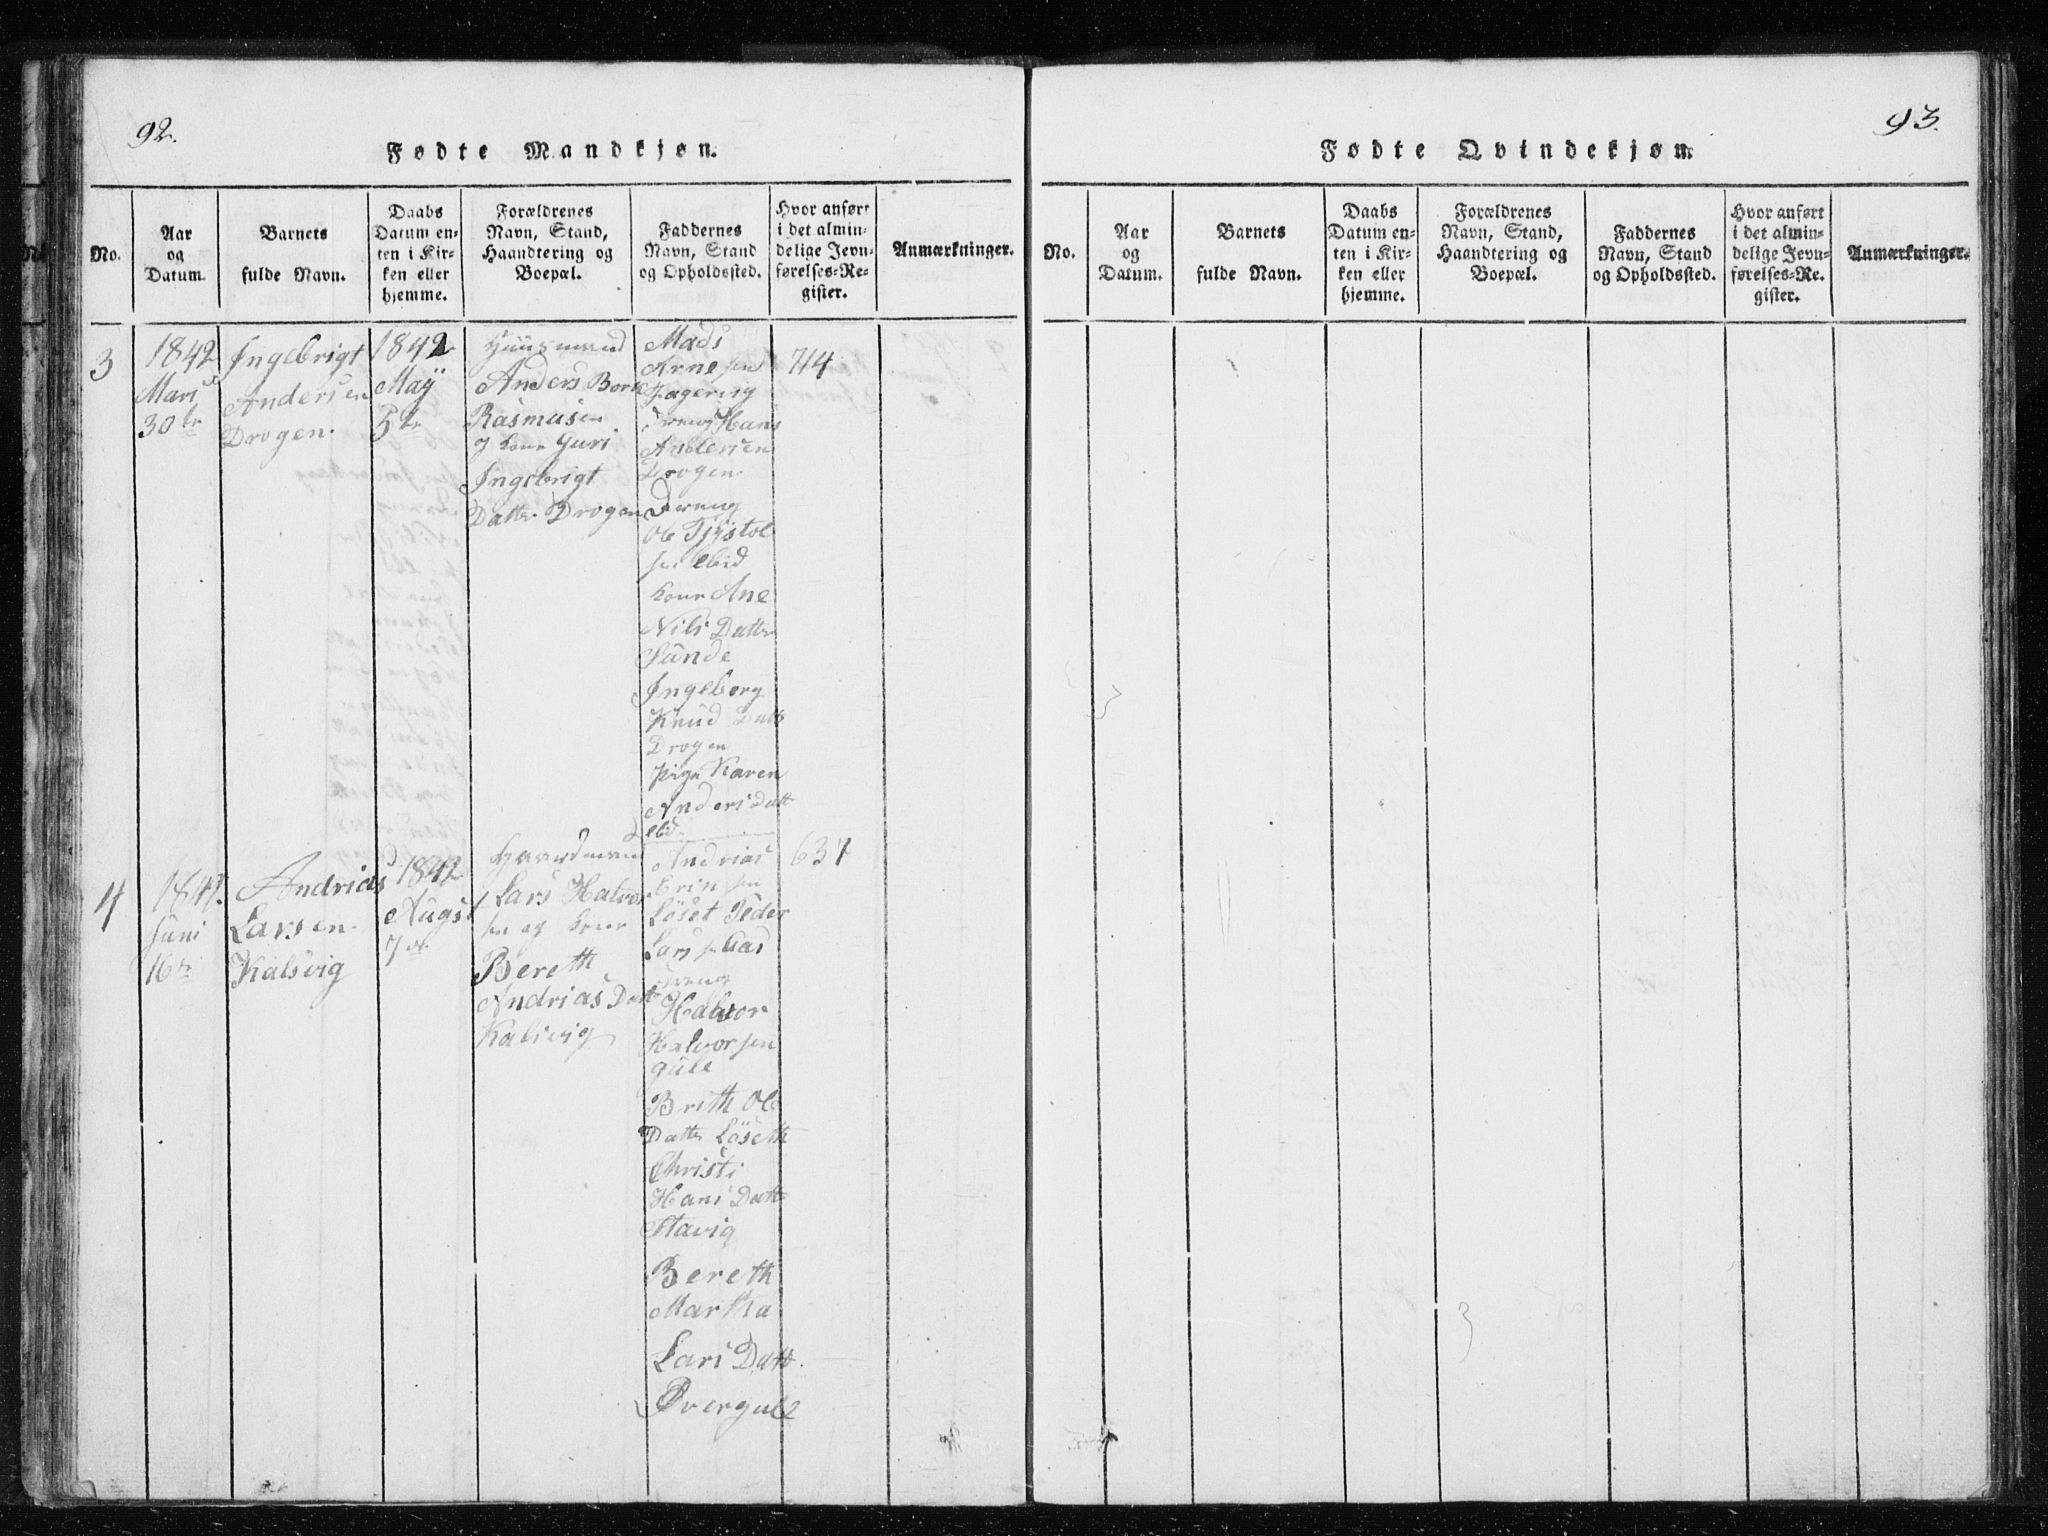 92.
Fødte Mandkjøn.
No.
Aar
og
Datum.
Barnets
fulde Navn.
Daabs
Datum en-
ten i Kir-
ken eller
hjemme.
Forældrenes
Navn, Stand,
Haandtering og
Boepæl.
Faddernes
Navn, Stand
og Opholdssted.
Hvor anført
i det almin-
delige Jevn-
førelses-Re-
gister.
Anmærkninger.
3
1842
Mars
30te
Ingebrigt
Andersen
Drogen.
1842
Maÿ
5te
Huusmand
Anders
Rasmusen
og kone Guri
Ingebrigt
Datter Drogen
Mads
Arnesen
Fagervig
Dreng Hans
Andersen
Drogen
Dreng
Ole
sen ibid
kone Ane
Nils Datter
Sunde
Ingeborg
Knud Datt
Drogen
Pige Karen
Anders Datt
ibid
714
4
184
Juni
16de
Andrias
Larsen
Kalsvig
1842
August
7de
Gaardmand
Lars Halvor
sen og kone
Bereth
Andrias Datt
Kalsvig
Andrias
sen
Løset Peder
Lars sen Aas
Dreng
Halvor
Halvorsen
gule
Brith Ols
Datter Løseth
Christi
Hans Datt
Stavig
Bereth
Martha
Lars Datt
Overgule
637
93.
Fødte Qvindekjøn.
No.
Aar
og
Datum.
Barnets
fulde Navn.
Daabs
Datum en-
ten i Kir-
ken eller
hjemme.
Forældrenes
Navn, Stand,
Haandtering og
Boepæl.
Faddernes
Navn, Stand
og Opholdssted.
Hvor anført
i det almin-
delige Jevn-
førelses-Re-
gister.
Anmærkninger.